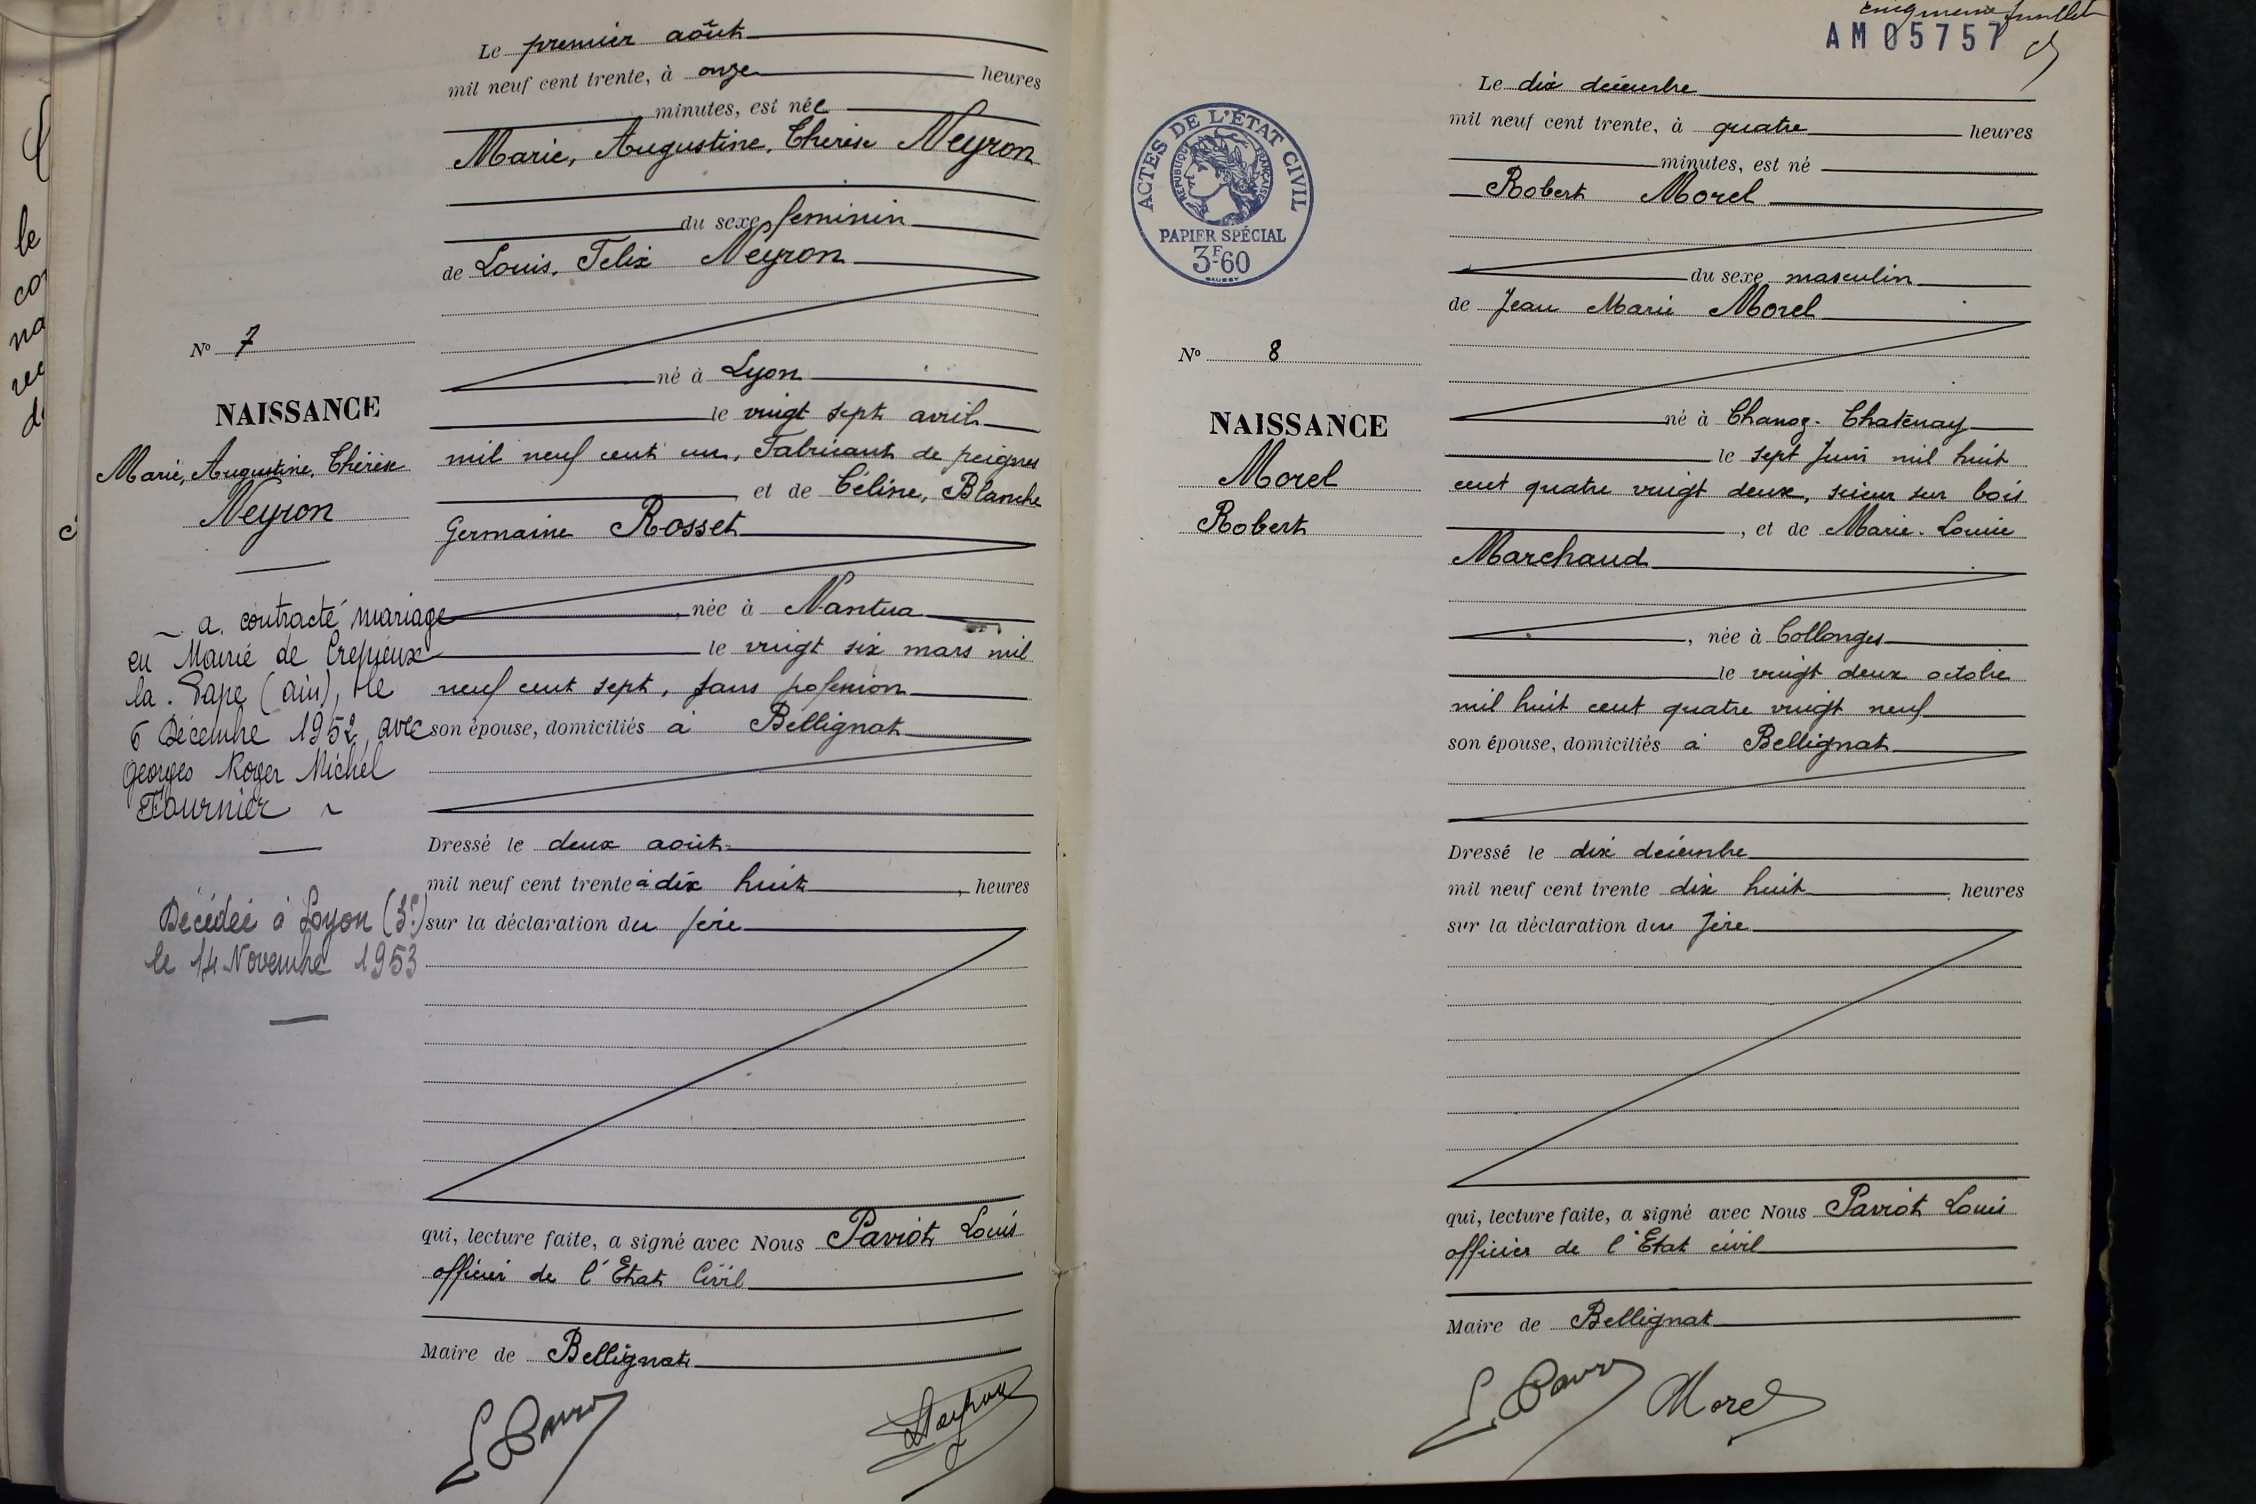 Le premier août
mil neuf cent trente, à onze heures
minutes, est née
Marie, Augustine, Thérèse Neyron
du sexe feminin
de Louis, Felix Neyron
né à Lyon
le vingt sept avril
mil neuf cent un, Fabricant de peignes
et de Céline, Blanche
Germaine Rosset
, née à Nantua
le vingt six mars mil
neuf cent sept, sans profession
son épouse, domiciliés à Bellignat
Dressé le deux août
mil neuf cent trente à dix huit, heures
sur la déclaration du père
qui, lecture faite, a signé avec Nous Paviot Louis
officier de l'Etat Civil
Maire de Bellignat
Nº 7
NAISSANCE
Marie, Augustine, Thérèse
Neyron
a contracté mariage
en Mairie de Crépieux
la Pape (ain), le
6 Décembre 1952 avec
Georges Roger Michel
Fournier
Décédée à Lyon (3e)
le 14 Novembre 1953
feuillet
AM 05757
ACTES DE L'ÉTAT CIVIL
RÉPUBLIQUE FRANÇAISE
PAPIER SPÉCIAL
3F60
Le dix décembre
mil neuf cent trente, à quatre heures
minutes, est né
Robert Morel
du sexe masculin
de Jean Marie Morel
né à Chanoz-Chatenay
le sept Juin mil huit
cent quatre vingt deux, scieur sur bois
, et de Marie-Louise
Marchand
, née à Collonges
le vingt deux octobre
mil huit cent quatre vingt neuf
son épouse, domiciliés à Bellignat
Dressé le dix décembre
mil neuf cent trente dix huit heures
sur la déclaration du père
qui, lecture faite, a signé avec Nous Paviot Louis
officier de l'Etat civil
Maire de Bellignat
Morel
Nº 8
NAISSANCE
Morel
Robert